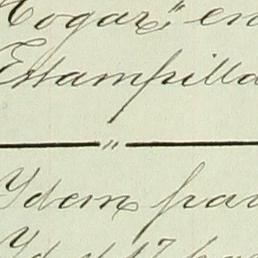 Hogar," en
Estampilla
"
Ydem par
Yd